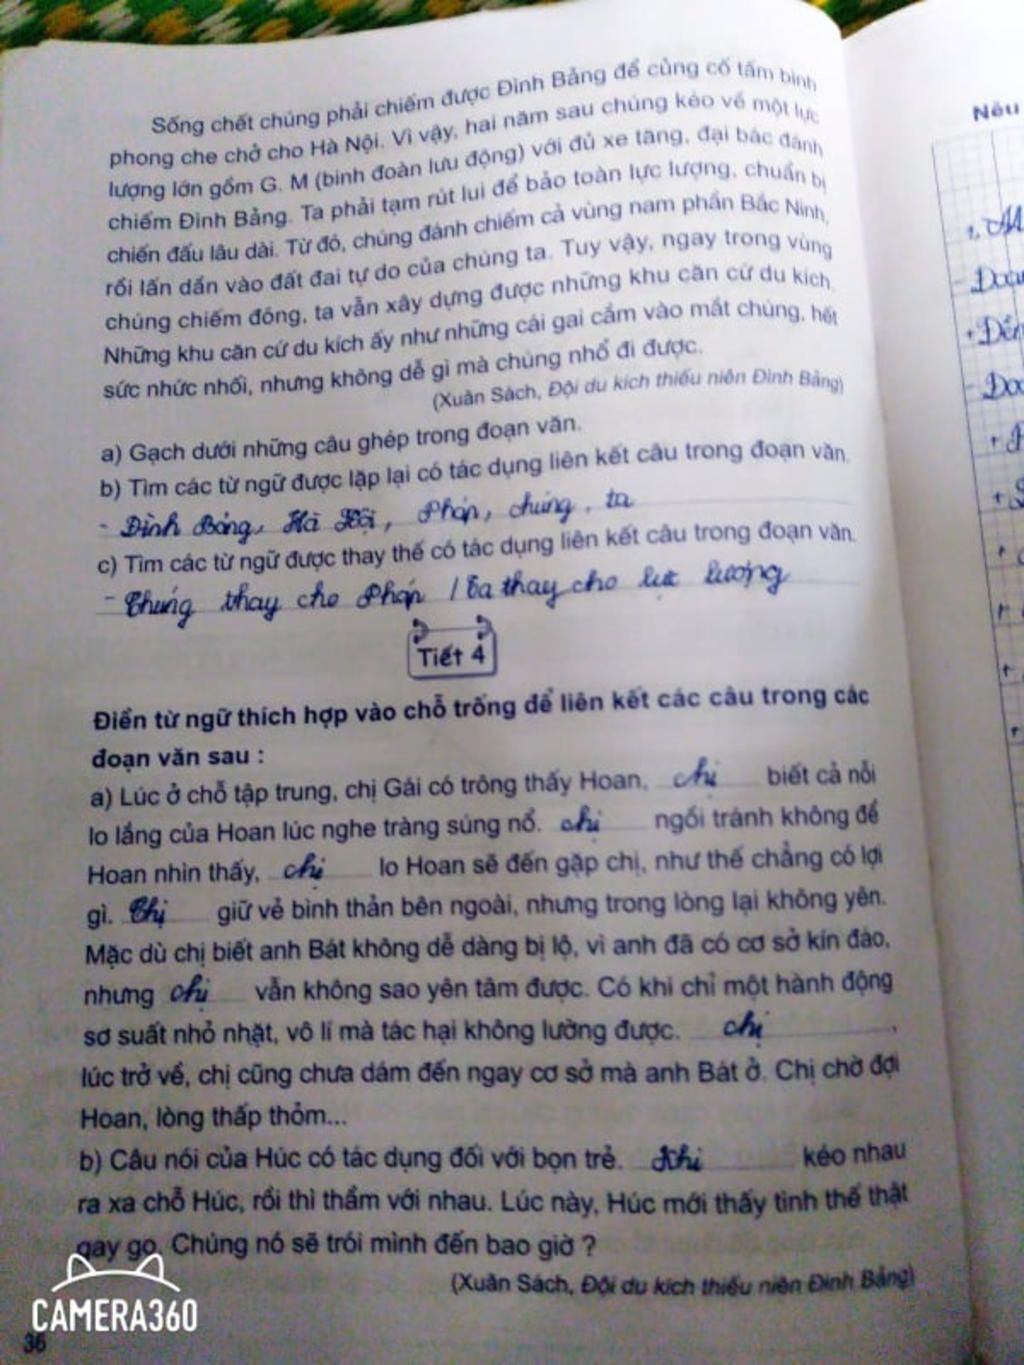 Sống chết chúng phải chiếm được Đình Bảng để củng cố tấm bình
phong che chở cho Hà Nội. Vì vậy, hai năm sau chúng kéo về một lực
lượng lớn gồm G. M (binh đoàn lưu động) với đủ xe tăng, đại bác đánh
chiếm Đình Bảng. Ta phải tạm rút lui để bảo toàn lực lượng, chuẩn bị
chiến đấu lâu dài. Từ đó, chúng đánh chiếm cả vùng nam phần Bắc Ninh,
rồi lấn dần vào đất đai tự do của chúng ta. Tuy vậy, ngay trong vùng
chúng chiếm đóng, ta vẫn xây dựng được những khu căn cứ du kích.
Những khu căn cứ du kích ấy như những cái gai cắm vào mắt chúng, hết
sức nhức nhối, nhưng không dễ gì mà chúng nhổ đi được.
(Xuân Sách, Đội du kích thiếu niên Đình Bảng)
a) Gạch dưới những câu ghép trong đoạn văn.
b) Tìm các từ ngữ được lặp lại có tác dụng liên kết câu trong đoạn văn.
- Đình Bảng, Hà Nội, Pháp, chúng, ta
c) Tìm các từ ngữ được thay thế có tác dụng liên kết câu trong đoạn văn.
- Chúng thay cho Pháp / Ta thay cho lực lượng
Tiết 4
Điền từ ngữ thích hợp vào chỗ trống để liên kết các câu trong các
đoạn văn sau :
a) Lúc ở chỗ tập trung, chị Gái có trông thấy Hoan, chị biết cả nỗi
lo lắng của Hoan lúc nghe tràng súng nổ. chị ngồi tránh không để
Hoan nhìn thấy, chị lo Hoan sẽ đến gặp chị, như thế chẳng có lợi
gì. Chị giữ vẻ bình thản bên ngoài, nhưng trong lòng lại không yên.
Mặc dù chị biết anh Bát không dễ dàng bị lộ, vì anh đã có cơ sở kín đáo,
nhưng chị vẫn không sao yên tâm được. Có khi chỉ một hành động
sơ suất nhỏ nhặt, vô lí mà tác hại không lường được. chị ,
lúc trở về, chị cũng chưa dám đến ngay cơ sở mà anh Bát ở. Chị chờ đợi
Hoan, lòng thấp thỏm...
b) Câu nói của Húc có tác dụng đối với bọn trẻ. kéo nhau
ra xa chỗ Húc, rồi thì thầm với nhau. Lúc này, Húc mới thấy tình thế thật
gay go. Chúng nó sẽ trói mình đến bao giờ ?
(Xuân Sách, Đội du kích thiếu niên Đình Bảng)
CAMERA360
36
Nêu